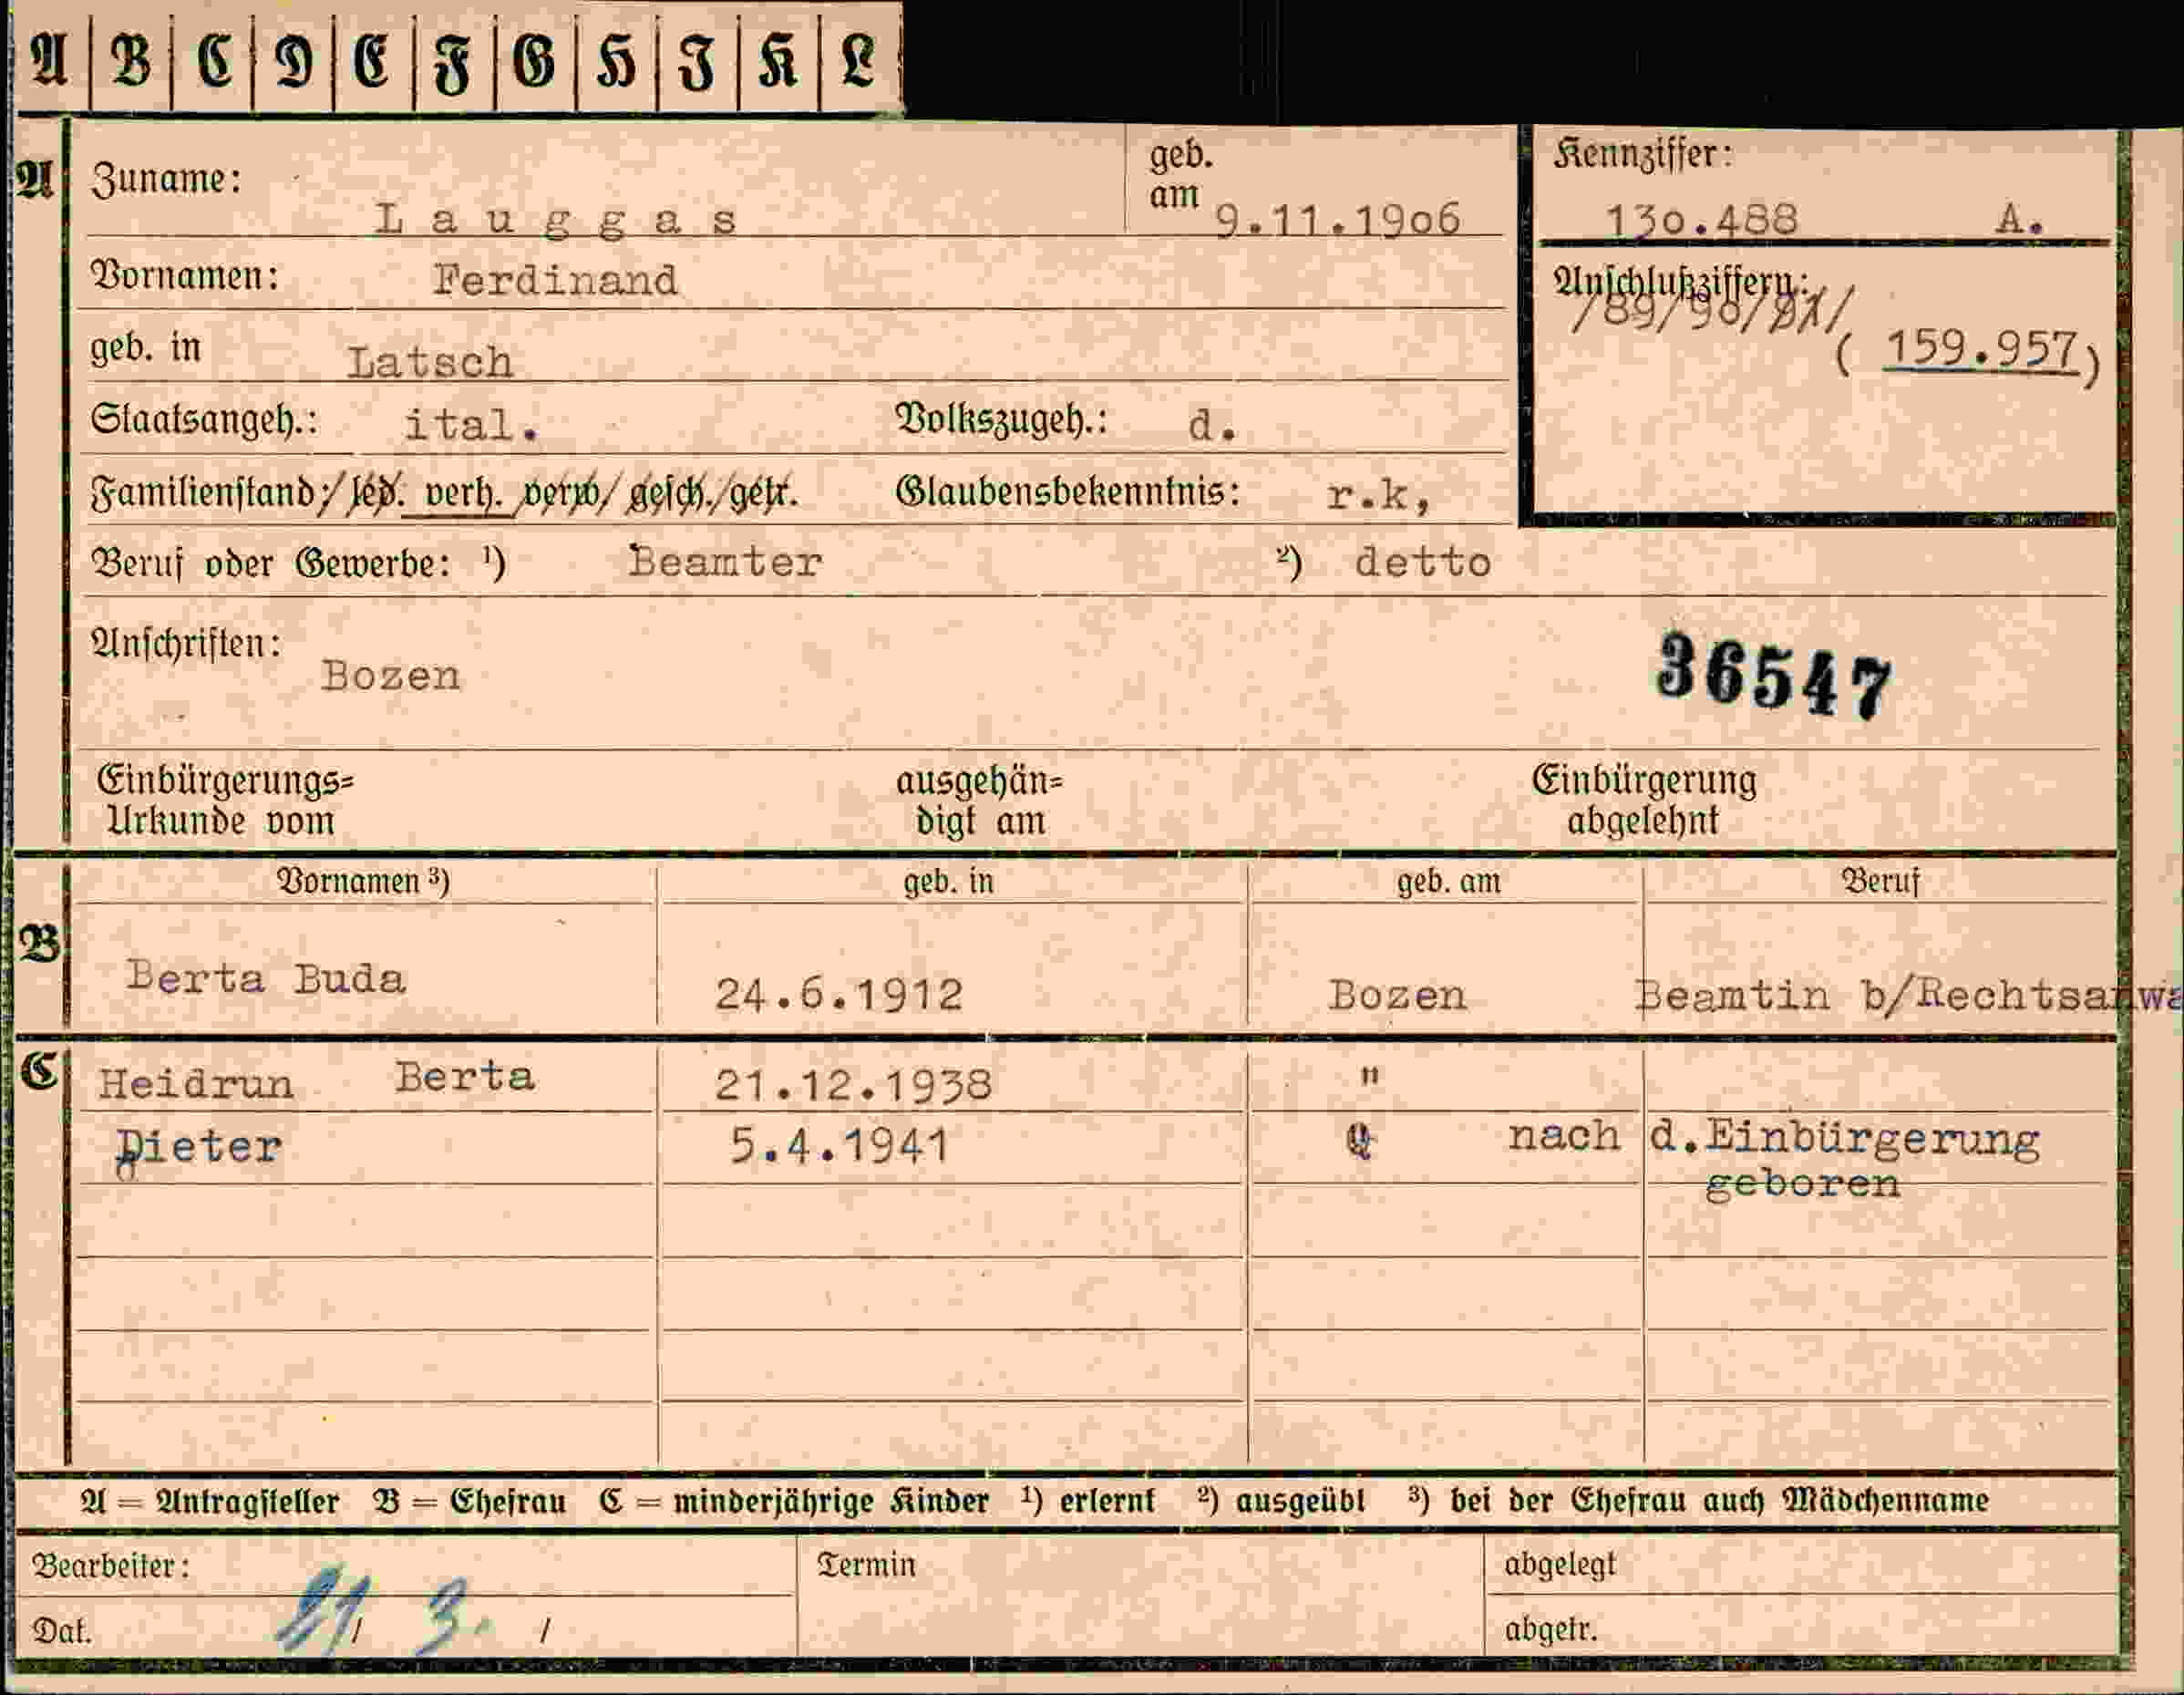 A B C D E F G H I K L
A Zuname: L a u g g a s geb. am 9.11.1906 Kennziffer: 130.488 A.
Vornamen: Ferdinand Anschlußziffern: /89/90/
geb. in Latsch ( 159.957)
Staatsangeh.: ital. Volkszugeh.: d.
Familienstand: led. verh. verw/ gesch./getr. Glaubensbekenntnis: r.k,
Beruf oder Gewerbe: ¹) Beamter ²) detto
Anschriften: Bozen 36547
Einbürgerungs= ausgehän= Einbürgerung
Urkunde vom digt am abgelehnt
Vornamen ³) geb. in geb. am Beruf
B Berta Buda 24.6.1912 Bozen Beamtin b/Rechtsanwa
C Heidrun Berta 21.12.1938 "
Dieter 5.4.1941 nach d.Einbürgerung
geboren
A = Antragsteller B = Ehefrau C = minderjährige Kinder ¹) erlernt ²) ausgeübt ³) bei der Ehefrau auch Mädchenname
Bearbeiter: Termin abgelegt
Dat. 21/ 3. / abgetr.